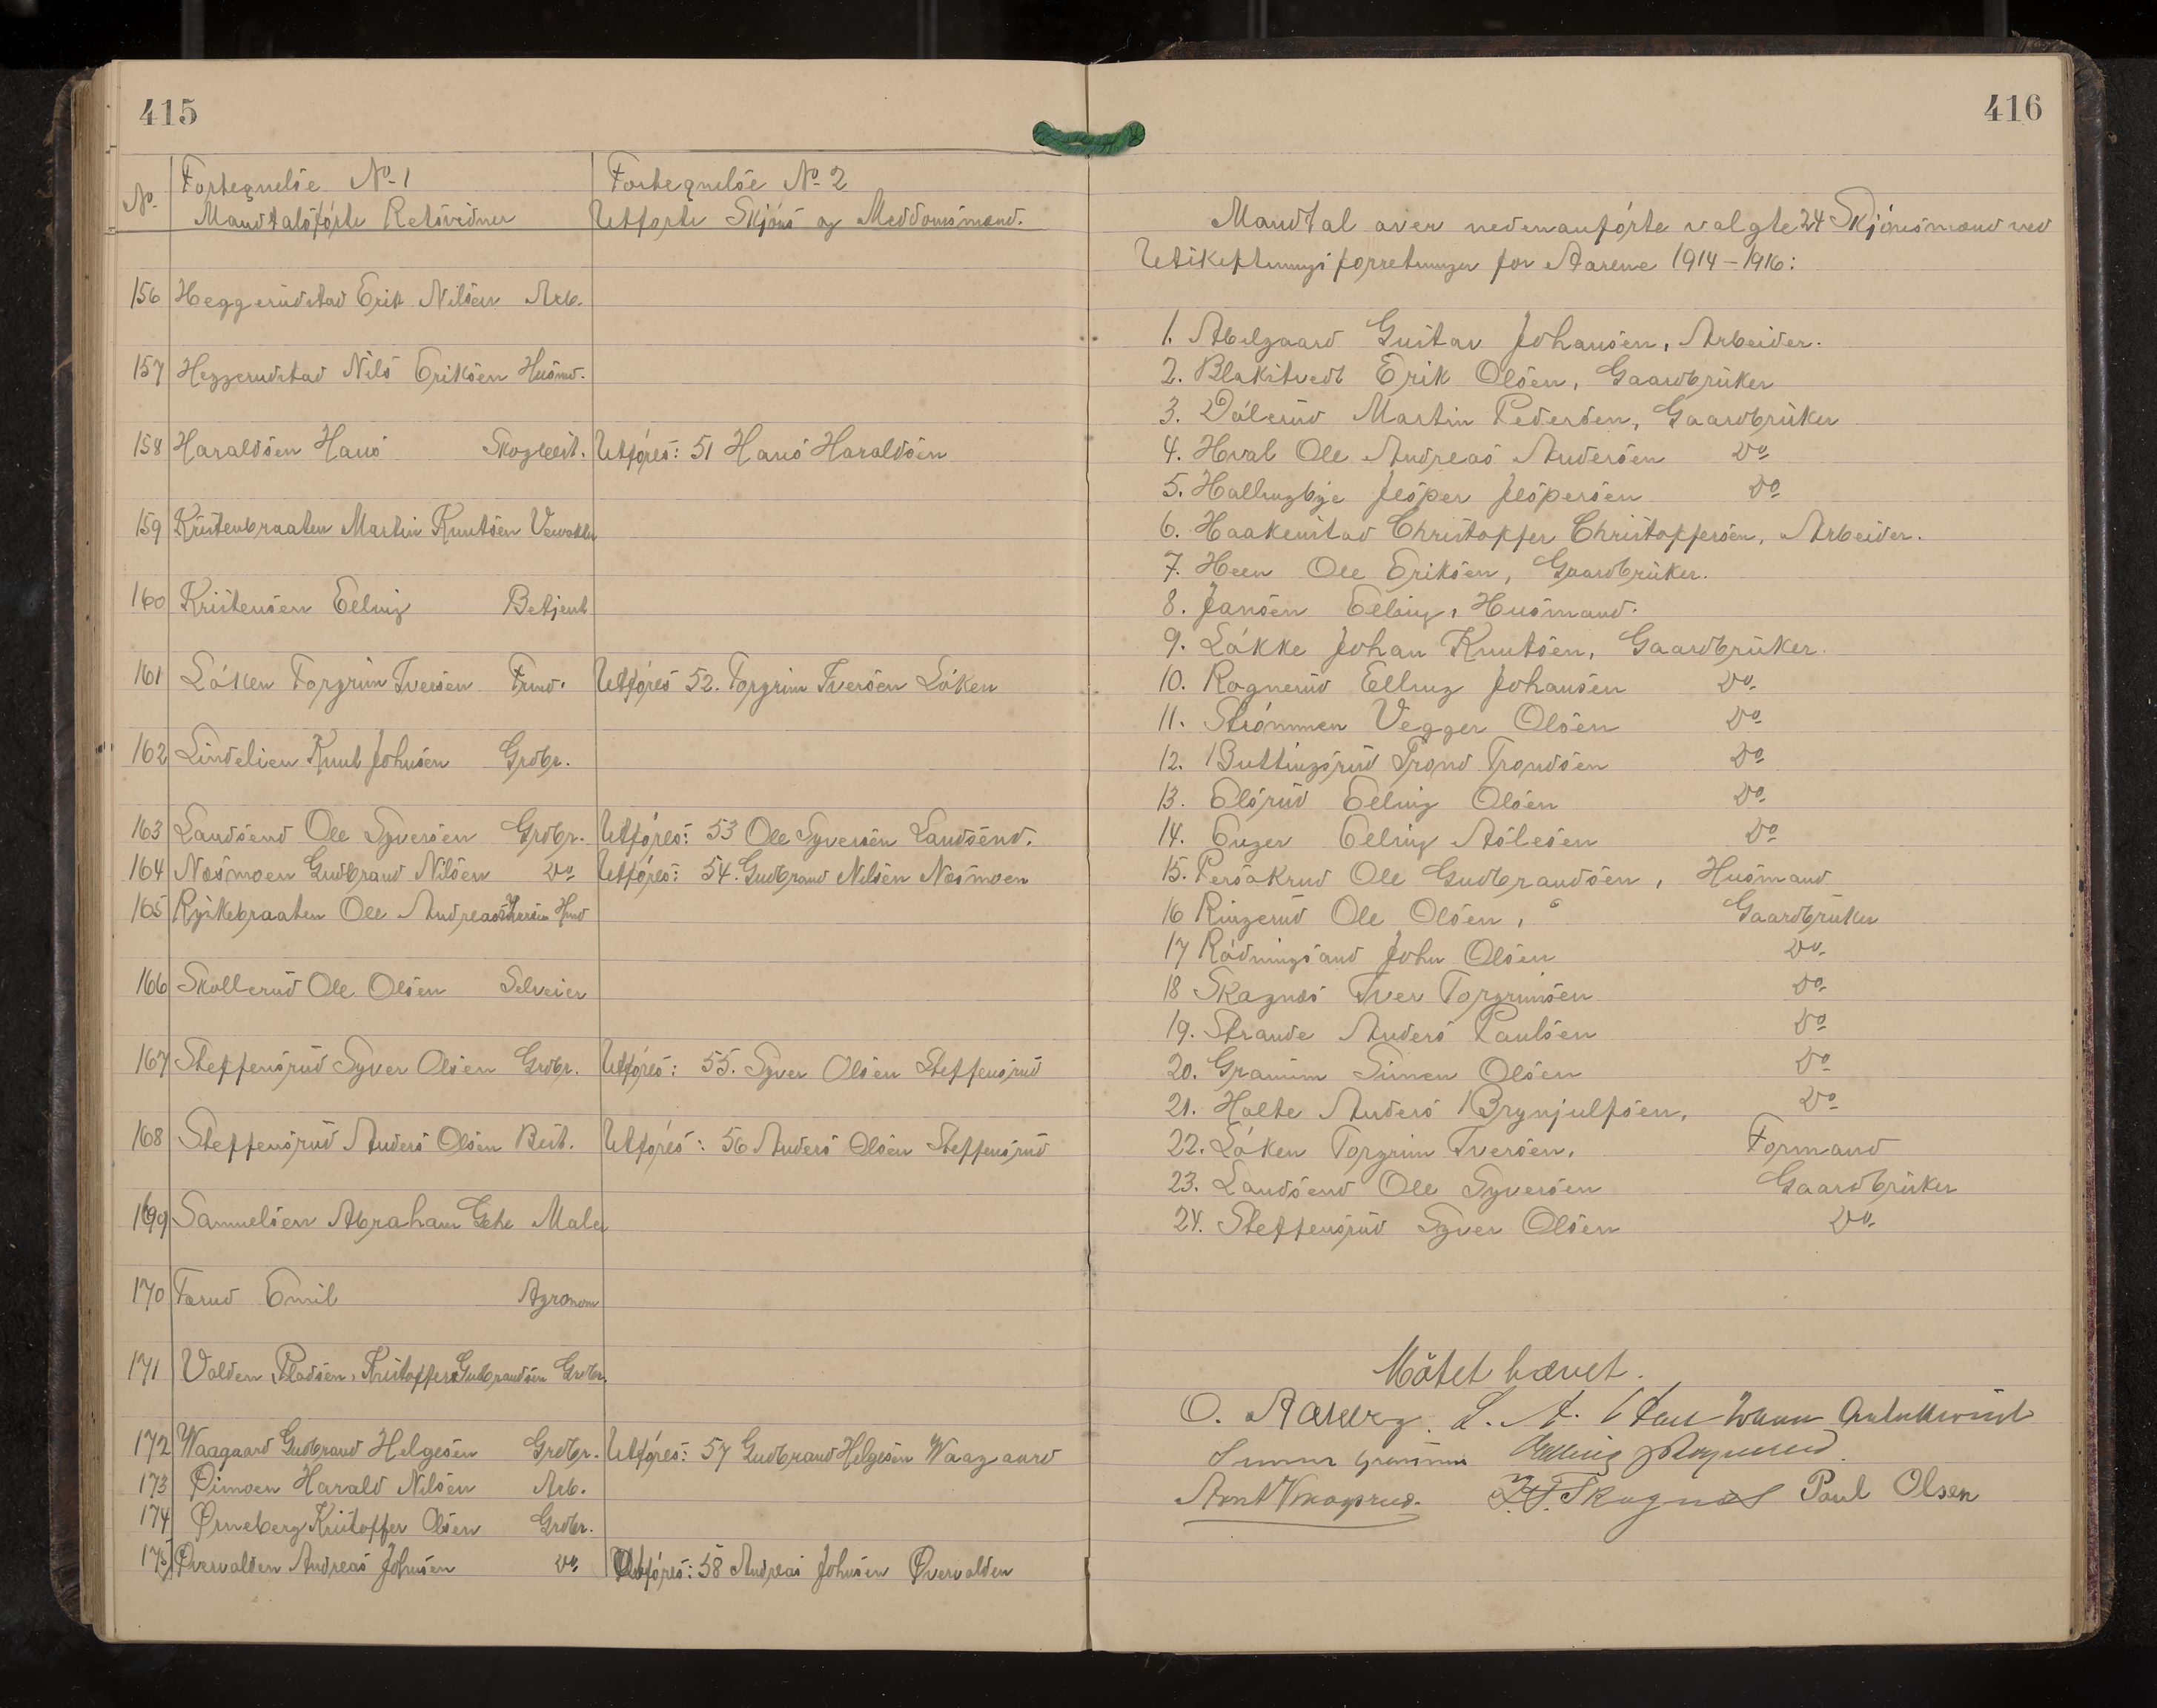 415
No Fortegnelse No 1 Fortegnelse No 2
Mandtalsförte Retsvidner Utförte Skjöns og Meddomsmænd.
156 Heggerudstad Erik Nilsen Arb.
157 Heggerudstad Nils Eriksen Husmd.
158 Haraldsen Hans Skogbest. Utföres: 51 Hans Haraldsen
159 Kristenbraaten Martin Knutsen
160 Kristensen Elling Betjent
161 Löken Torgrim Iversen Frmd. Utföres 52. Torgrim Iversen Löken
162 Lindelien Knut Johnsen Grdbr.
163 Landsend Ole Syversen Grdbr. Utföres: 53 Ole Syversen Landsend.
164 Næsmoen Gudbrand Nilsen Do Utföres: 54. Gudbrand Nilsen Næsmoen
165 Ryskebraaten Ole Andreas Hmd
166 Skollerud Ole Olsen Selveier
167 Steffensrud Syver Olsen Grdbr. Utföres: 55. Syver Olsen Steffensrud
168 Steffensrud Anders Olsen Best. Utföres: 56 Anders Olsen Steffensrud
169 Samuelsen Abraham Gehe Maler
170 Tærud Emil Agronom
171 Valden Pladsen, Kristoffer Gudbrandsen Grdbr.
172 Waagaard Gudbrand Helgesen Grdbr. Utföres: 57 Gudbrand Helgesen Waagaard
173 Øimoen Harald Nilsen Arb.
174 Ørneberg Kristoffer Olsen Grdbr.
175 Øvervalden Andreas Johnsen Do Utföres: 58 Andreas Johnsen Øvervalden
416
Mandtal over nedenanförte valgte 24 Skjönsmænd ved
Utskiftningsforretninger for Aarene 1914-1916:
1. Abelgaard Gustav Johansen, Arbeider.
2. Blakstvedt Erik Olsen, Gaardbruker
3. Dölerud Martin Pedersen, Gaardbruker
4. Hval Ole Andreas Andersen Do
5. Hallingbye Jesper Jespersen Do
6. Haakenstad Christoffer Christoffersen, Arbeider.
7. Heen Ole Eriksen, Gaardbruker.
8. Jansen Elling, Husmand.
9. Løkke Johan Knutsen, Gaardbruker.
10. Rognerud Elling Johansen Do
11. Strömmen Vegger Olsen Do
12. Buttingsrud Trond Trondsen Do
13. Elsrud Elling Olsen Do
14. Enger Elling Aslesen Do
15. Persøkrud Ole Gudbrandsen, Husmand
16 Ringerud Ole Olsen, Gaardbruker
17 Rödningsand John Olsen Do
18 Skagnæs Iver Torgrimsen Do
19. Strande Anders Paulsen Do
20. Gramim Simen Olsen Do
21. Holte Anders Brynjulfsen, Do
22. Löken Torgrim Iversen, Formand
23. Landsend Ole Syversen Gaardbruker
24. Steffensrud Syver Olsen Do
Mötet hævet.
O. Aaberg.
Elling Rognerud
Skagnæs Paul Olsen